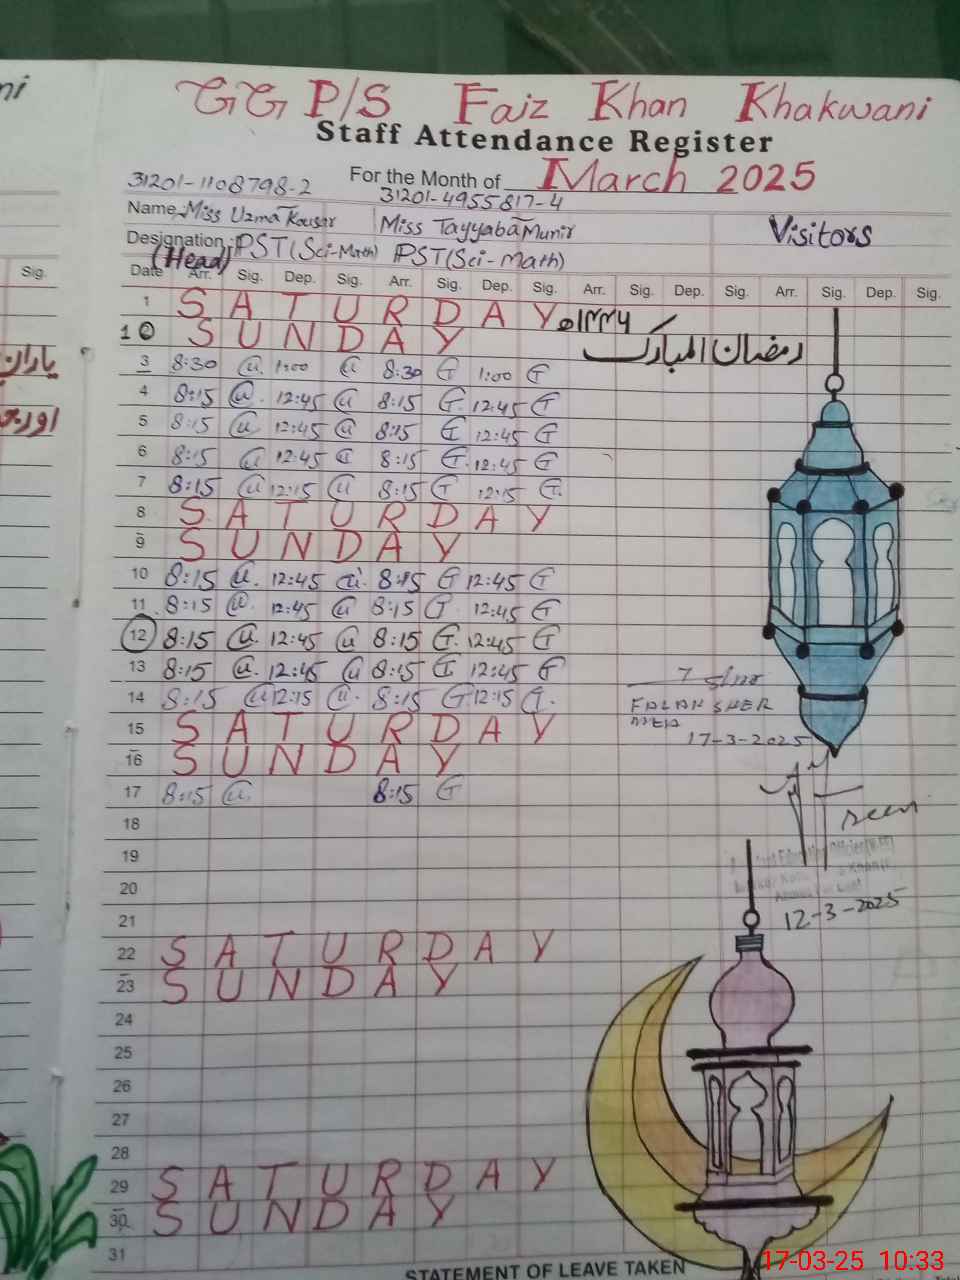 GG P/S Faiz Khan Khakwani
Staff Attendance Register
For the Month of March 2025
31201-1108798-2 31201-4955817-4
Name: Miss Uzma Kousar Miss Tayyaba Munir Visitors
Designation: PST (Sci-Math) PST (Sci-math)
(Head)
Sig.
Date Arr. Sig. Dep. Sig. Arr. Sig. Dep. Sig. Arr. Sig. Dep. Sig. Arr. Sig. Dep. Sig.
1 SATURDAY
SUNDAY
رمضان المبارک ۱۴۴۶ھ
3 8:30 1:00 8:30 1:00
4 8:15 12:45 8:15 12:45
5 8:15 12:45 8:15 12:45
6 8:15 12:45 8:15 12:45
7 8:15 12:15 8:15 12:15
8 SATURDAY
9 SUNDAY
10 8:15 12:45 8:15 12:45
11 8:15 12:45 8:15 12:45
12 8:15 12:45 8:15 12:45
13 8:15 12:45 8:15 12:45
14 8:15 12:15 8:15 12:15
15 SATURDAY
16 SUNDAY
17-3-2025
17 8:15 8:15
seen
18
19
20
21
12-3-2025
22 SATURDAY
23 SUNDAY
24
25
26
27
28
29 SATURDAY
30 SUNDAY
31
STATEMENT OF LEAVE TAKEN
17-03-25 10:33